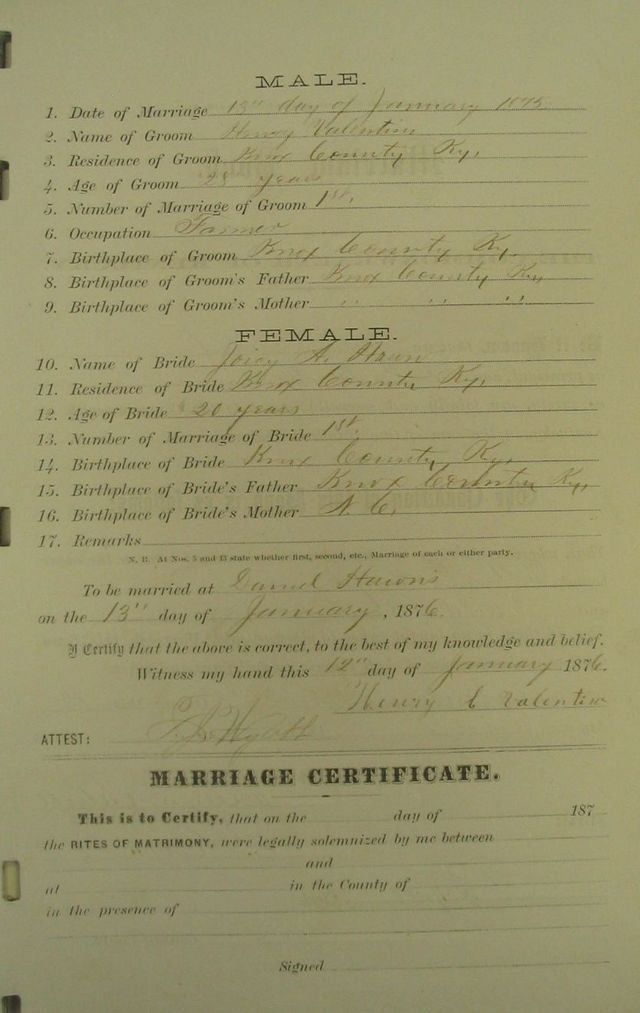 MALE.
1. Date of Marriage 13" day of January 187
2. Name of Groom Henry Valentine
3. Residence of Groom Knox County Ky,
4. Age of Groom 28 years
5. Number of Marriage of Groom 1st.
6. Occupation Farmer
7. Birthplace of Groom Knox County Ky.
8. Birthplace of Groom's Father Knox County Ky,
9. Birthplace of Groom's Mother " " "
FEMALE.
10. Name of Bride A.
11. Residence of Bride Knox County Ky,
12. Age of Bride 20 years
13. Number of Marriage of Bride 1st.
14. Birthplace of Bride Knox County Ky,
15. Birthplace of Bride's Father Knox County Ky,
16. Birthplace of Bride's Mother N. C.
17. Remarks
N. B. At Nos. 5 and 13 state whether first, second, etc., Marriage of each or either party.
To be married at Daniel
on the 13" day of January, 1876.
I Certify that the above is correct, to the best of my knowledge and belief.
Witness my hand this 12" day of January 1876.
Henry C Valentine
ATTEST:
MARRIAGE CERTIFICATE.
This is to Certify, that on the day of 187
the RITES OF MATRIMONY, were legally solemnized by me between
and
at in the County of
in the presence of
Signed